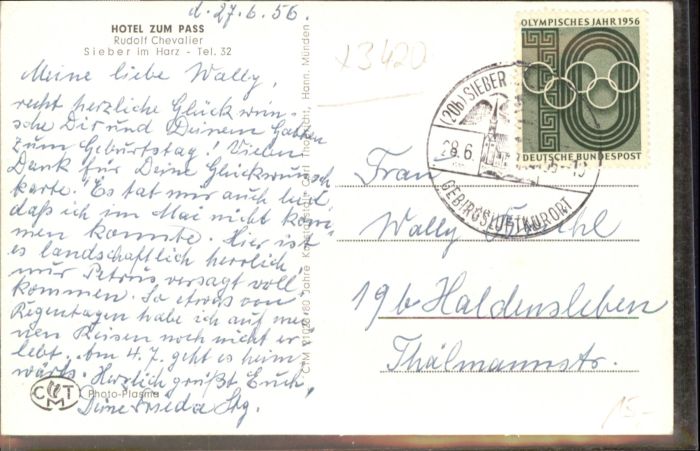 d. 27.6.56.
HOTEL ZUM PASS
Rudolf Chevalier
Sieber im Harz - Tel. 32
Meine liebe Wally,
recht herzliche Glückwün-
sche Dir und Deinem Gatten
zum Geburtstag! Vielen
Dank für Deine Glückwunsch
karte. Es tat mir auch leid,
daß ich im Mai nicht kom-
men konnte. Hier ist
es landschaftlich herrlich,
nur Petrus versagt voll
kommen. So etwas von
Regentagen habe ich auf mei
nen Reisen noch nicht er
lebt. Am 4.7. geht es heim
wärts. Herzlich grüßt Euch,
Deine Frieda
CTM
Photo-Plasma
Jahre Kartograph. Carl Thoericht, Hann. Münden
x3420
OLYMPISCHES JAHR 1956
DEUTSCHE BUNDESPOST
(20b) SIEBER
28.6.
GEBIRGSLUFTKURORT
Frau
Wally
19b Haldensleben
Thälmannstr.
15,-